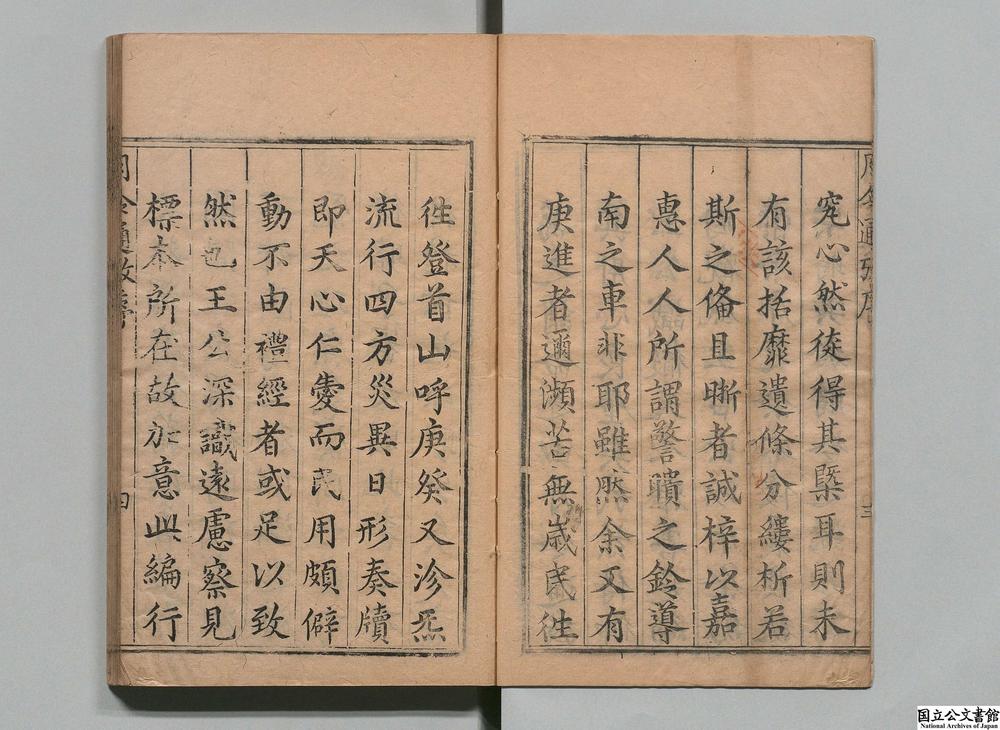 究心然從得其槩耳則未
有該括靡遺條分縷析若
斯之俻且晣者誠梓以嘉
惠人人所謂警瞶之鈴導
南之車非耶雖然余又有
庚進者邇瀕苦無歳民徃
徃登首山呼庚癸又沴炁
流行四方災異日形奏牘
即天心仁愛而民用頗僻
動不由禮經者或足以致
然也王公深識遠慮察見
標本所在故加意此編行
四
国立公文書館
National Archives of Japan